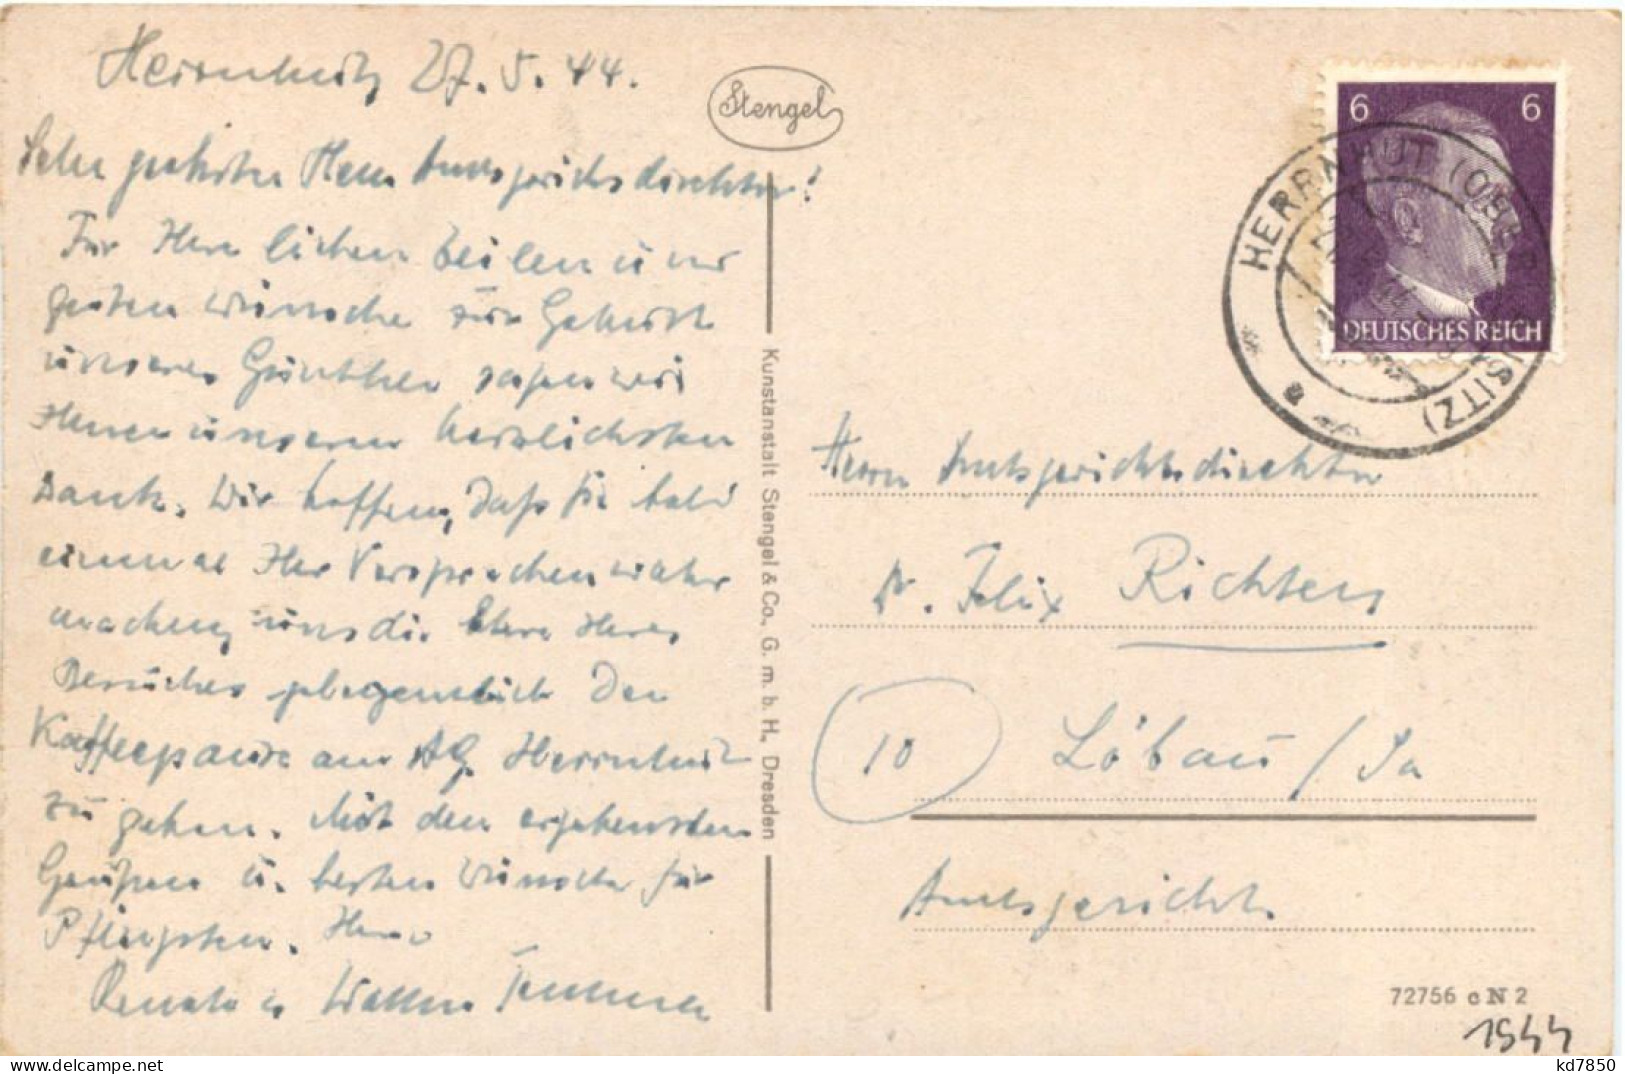 Herrnhut, 27. 5. 44.
Sehr geehrter Herr Amtsgerichtsdirektor!
Für Ihre lieben Zeilen u. die
guten Wünsche zur Geburt
unseres Günther sagen wir
Ihnen unseren herzlichsten
Dank. Wir hoffen, daß Sie bald
einmal Ihr Versprechen wahr
machen, uns die Ehre Ihres
Besuches gelegentlich der
Kaffeepause am AG. Herrnhut
zu geben. Mit den ergebensten
Grüßen u. besten Wünschen für
Pfingsten. Ihre
Renate u. Walter
Stengel
Kunstanstalt Stengel & Co., G. m. b. H., Dresden
6 6
DEUTSCHES REICH
HERRNHUT (OBERLAUSITZ)
Herrn Amtsgerichtsdirektor
Dr. Felix Richter
10 Löbau / Sa
Amtsgericht
72756 c N 2
1944
kd7850